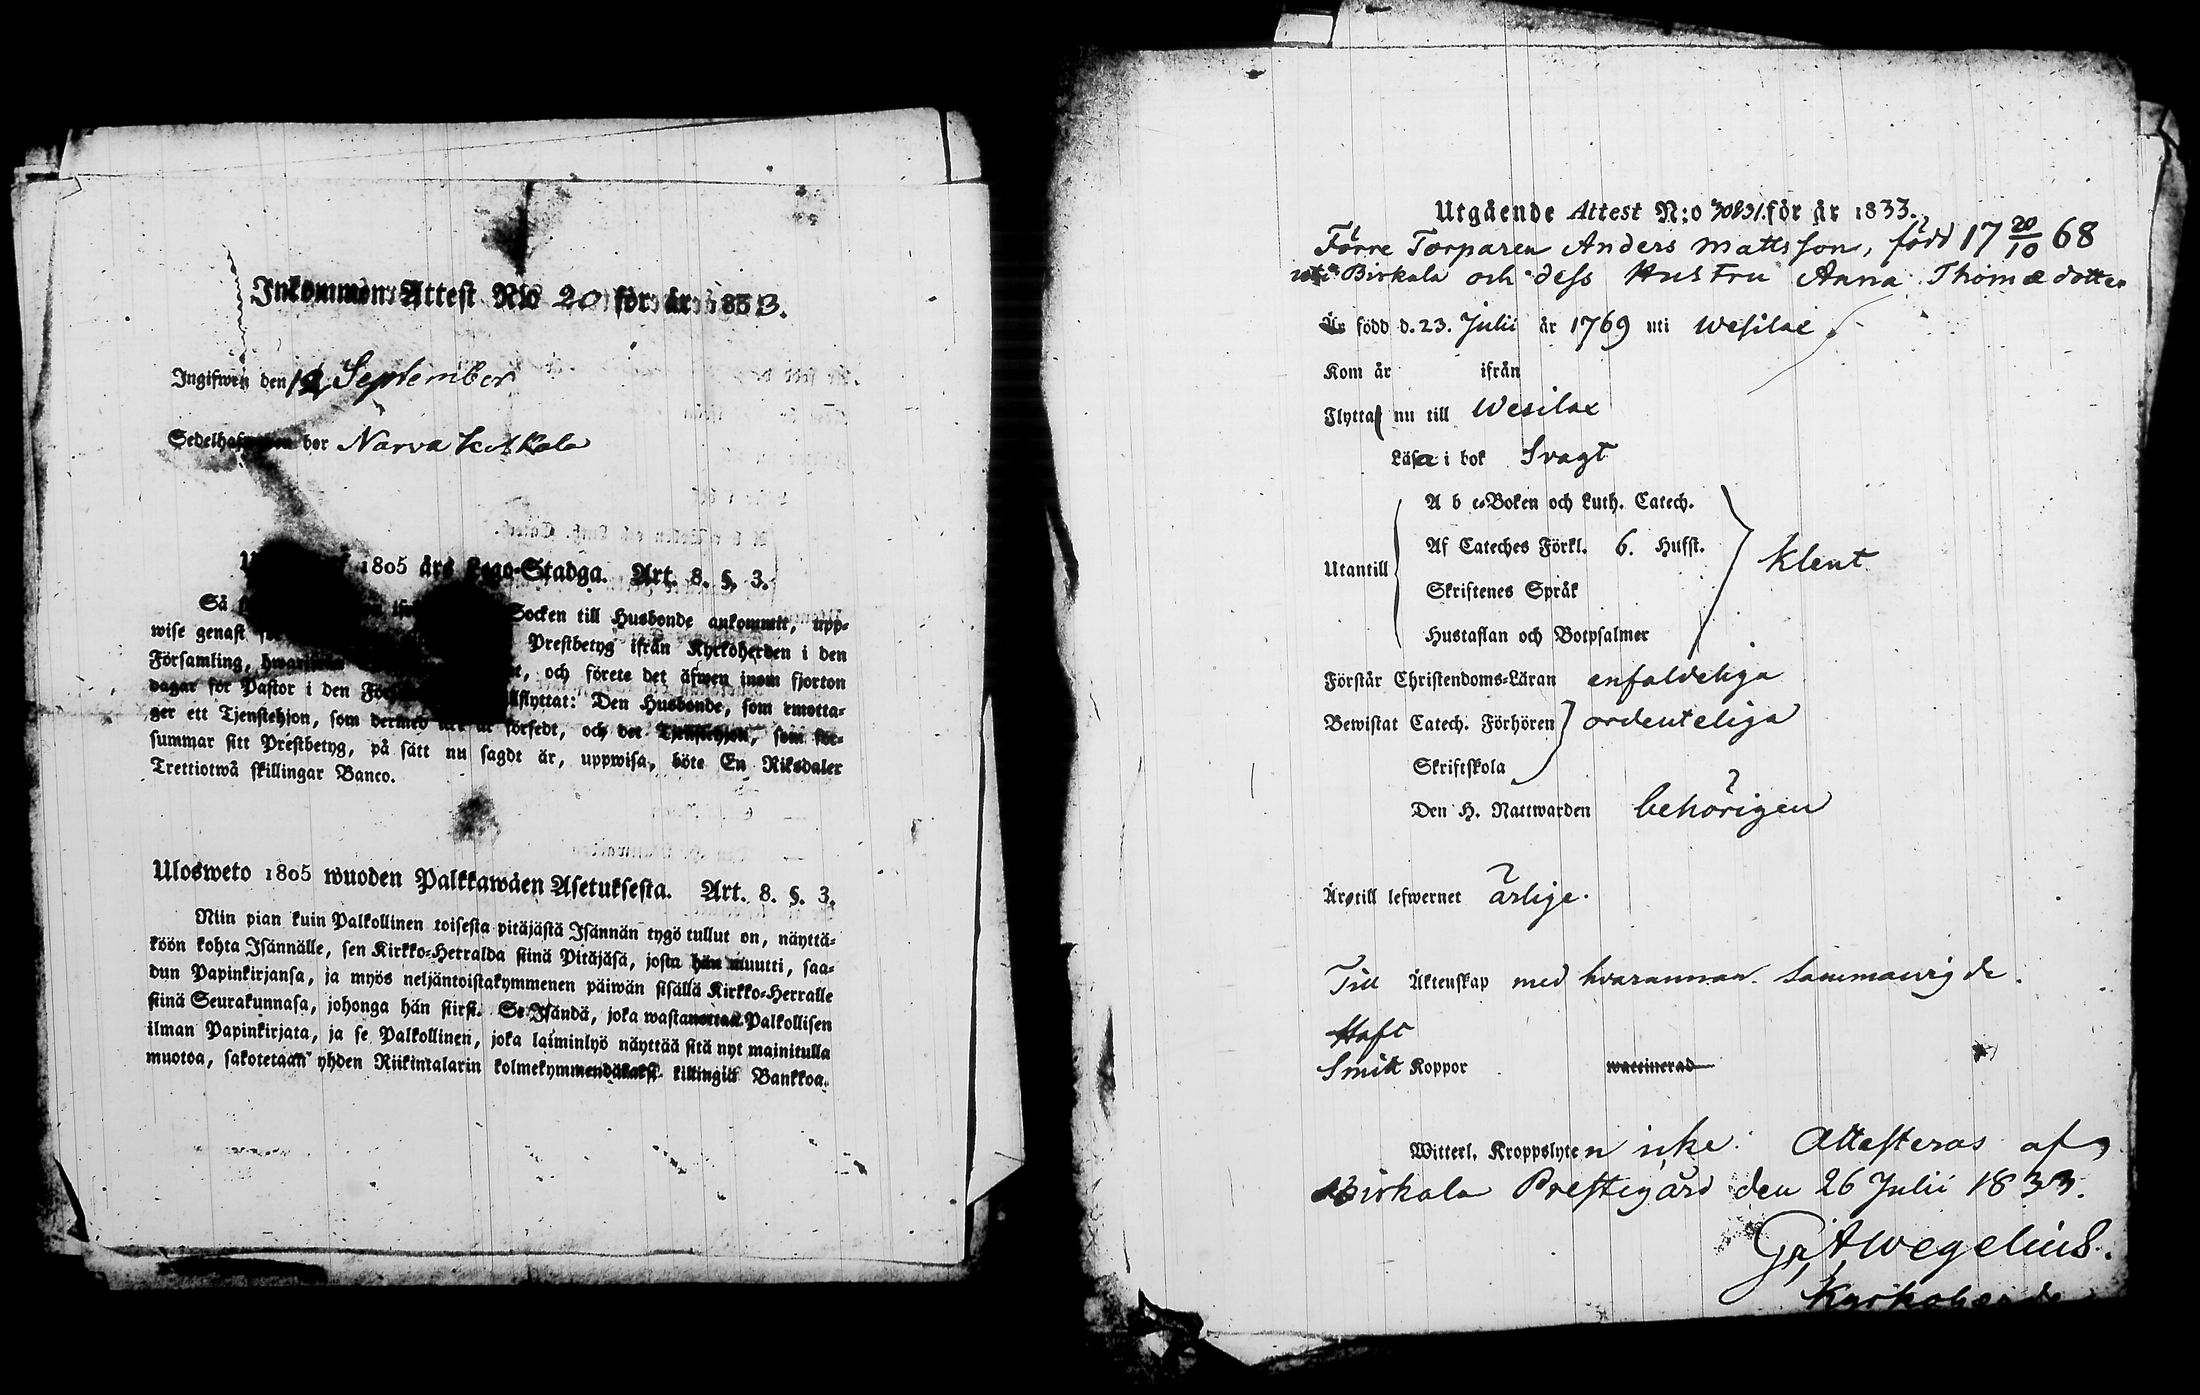 Inkommen Attest N:o 20 för år 1833.
Ingifwen den 12 September
Sedelhafwaren bor Narva Koskala
1805 års Lego-Stadga. Art. 8. §. 3.
Så Socken till Husbonde ankommit, upp-
wise genast Prestbetyg ifrån Kyrkoherden i den
Församling, och förete det äfwen inom fjorton
dagar för Pastor i den Den Husbonde, som emotta-
ger ett Tjenstehjon, som dermed ej är försedt, och det Tjenstehjon, som för-
summar sitt Prestbetyg, på sätt nu sagdt är, uppwisa, böte En Riksdaler
Trettiotwå skillingar Banco.
Ulosweto 1805 wuoden Palkkawäen Asetuksesta. Art. 8. §. 3.
Niin pian kuin Palkollinen toisesta pitäjästä Isännän tygö tullut on, näyttä-
köön kohta Isännälle, sen Kirkko-Herralda siinä Pitäjäsä, josta hän muutti, saa-
dun Papinkirjansa, ja myös neljäntoistakymmenen päiwän sisällä Kirkko-Herralle
siinä Seurakunnasa, johonga hän siirsi. Se Isändä, joka wastanottaa Palkollisen
ilman Papinkirjata, ja se Palkollinen, joka laiminlyö näyttää sitä nyt mainitulla
muotoa, sakotetaan yhden Riikintalarin kolmekymmendäkaksi killingiä Bankkoa.
Utgående Attest N:o 30&31 för år 1833.
Förre Torparen Anders Mattsson, född 17 20/10 68
uti Birkala och dess Hustru Anna Thomædotter
Är född d. 23. Julii år 1769 uti Wesilax
Kom år ifrån
Flytta nu till Wesilax
Läsa i bok Svagt
A b c-Boken och Luth. Catech.
Af Cateches Förkl. 6. Hufst.
Utantill klent
Skriftenes Språk
Hustaflan och Botpsalmer
Förstår Christendoms-Läran enfaldeliga
Bewistat Catech. Förhören ordenteliga
Skriftskola
Den H. Nattwarden behörigen
Äro till lefwernet ärlige.
Till Äktenskap med hvarannan sammanvigde.
Haft
Smitt Koppor waccinerad
Witterl. Kroppslyten icke. Attesteras af
Birkala Prestegård den 26 Julii 1833.
Wegelius.
Kyrkoherde